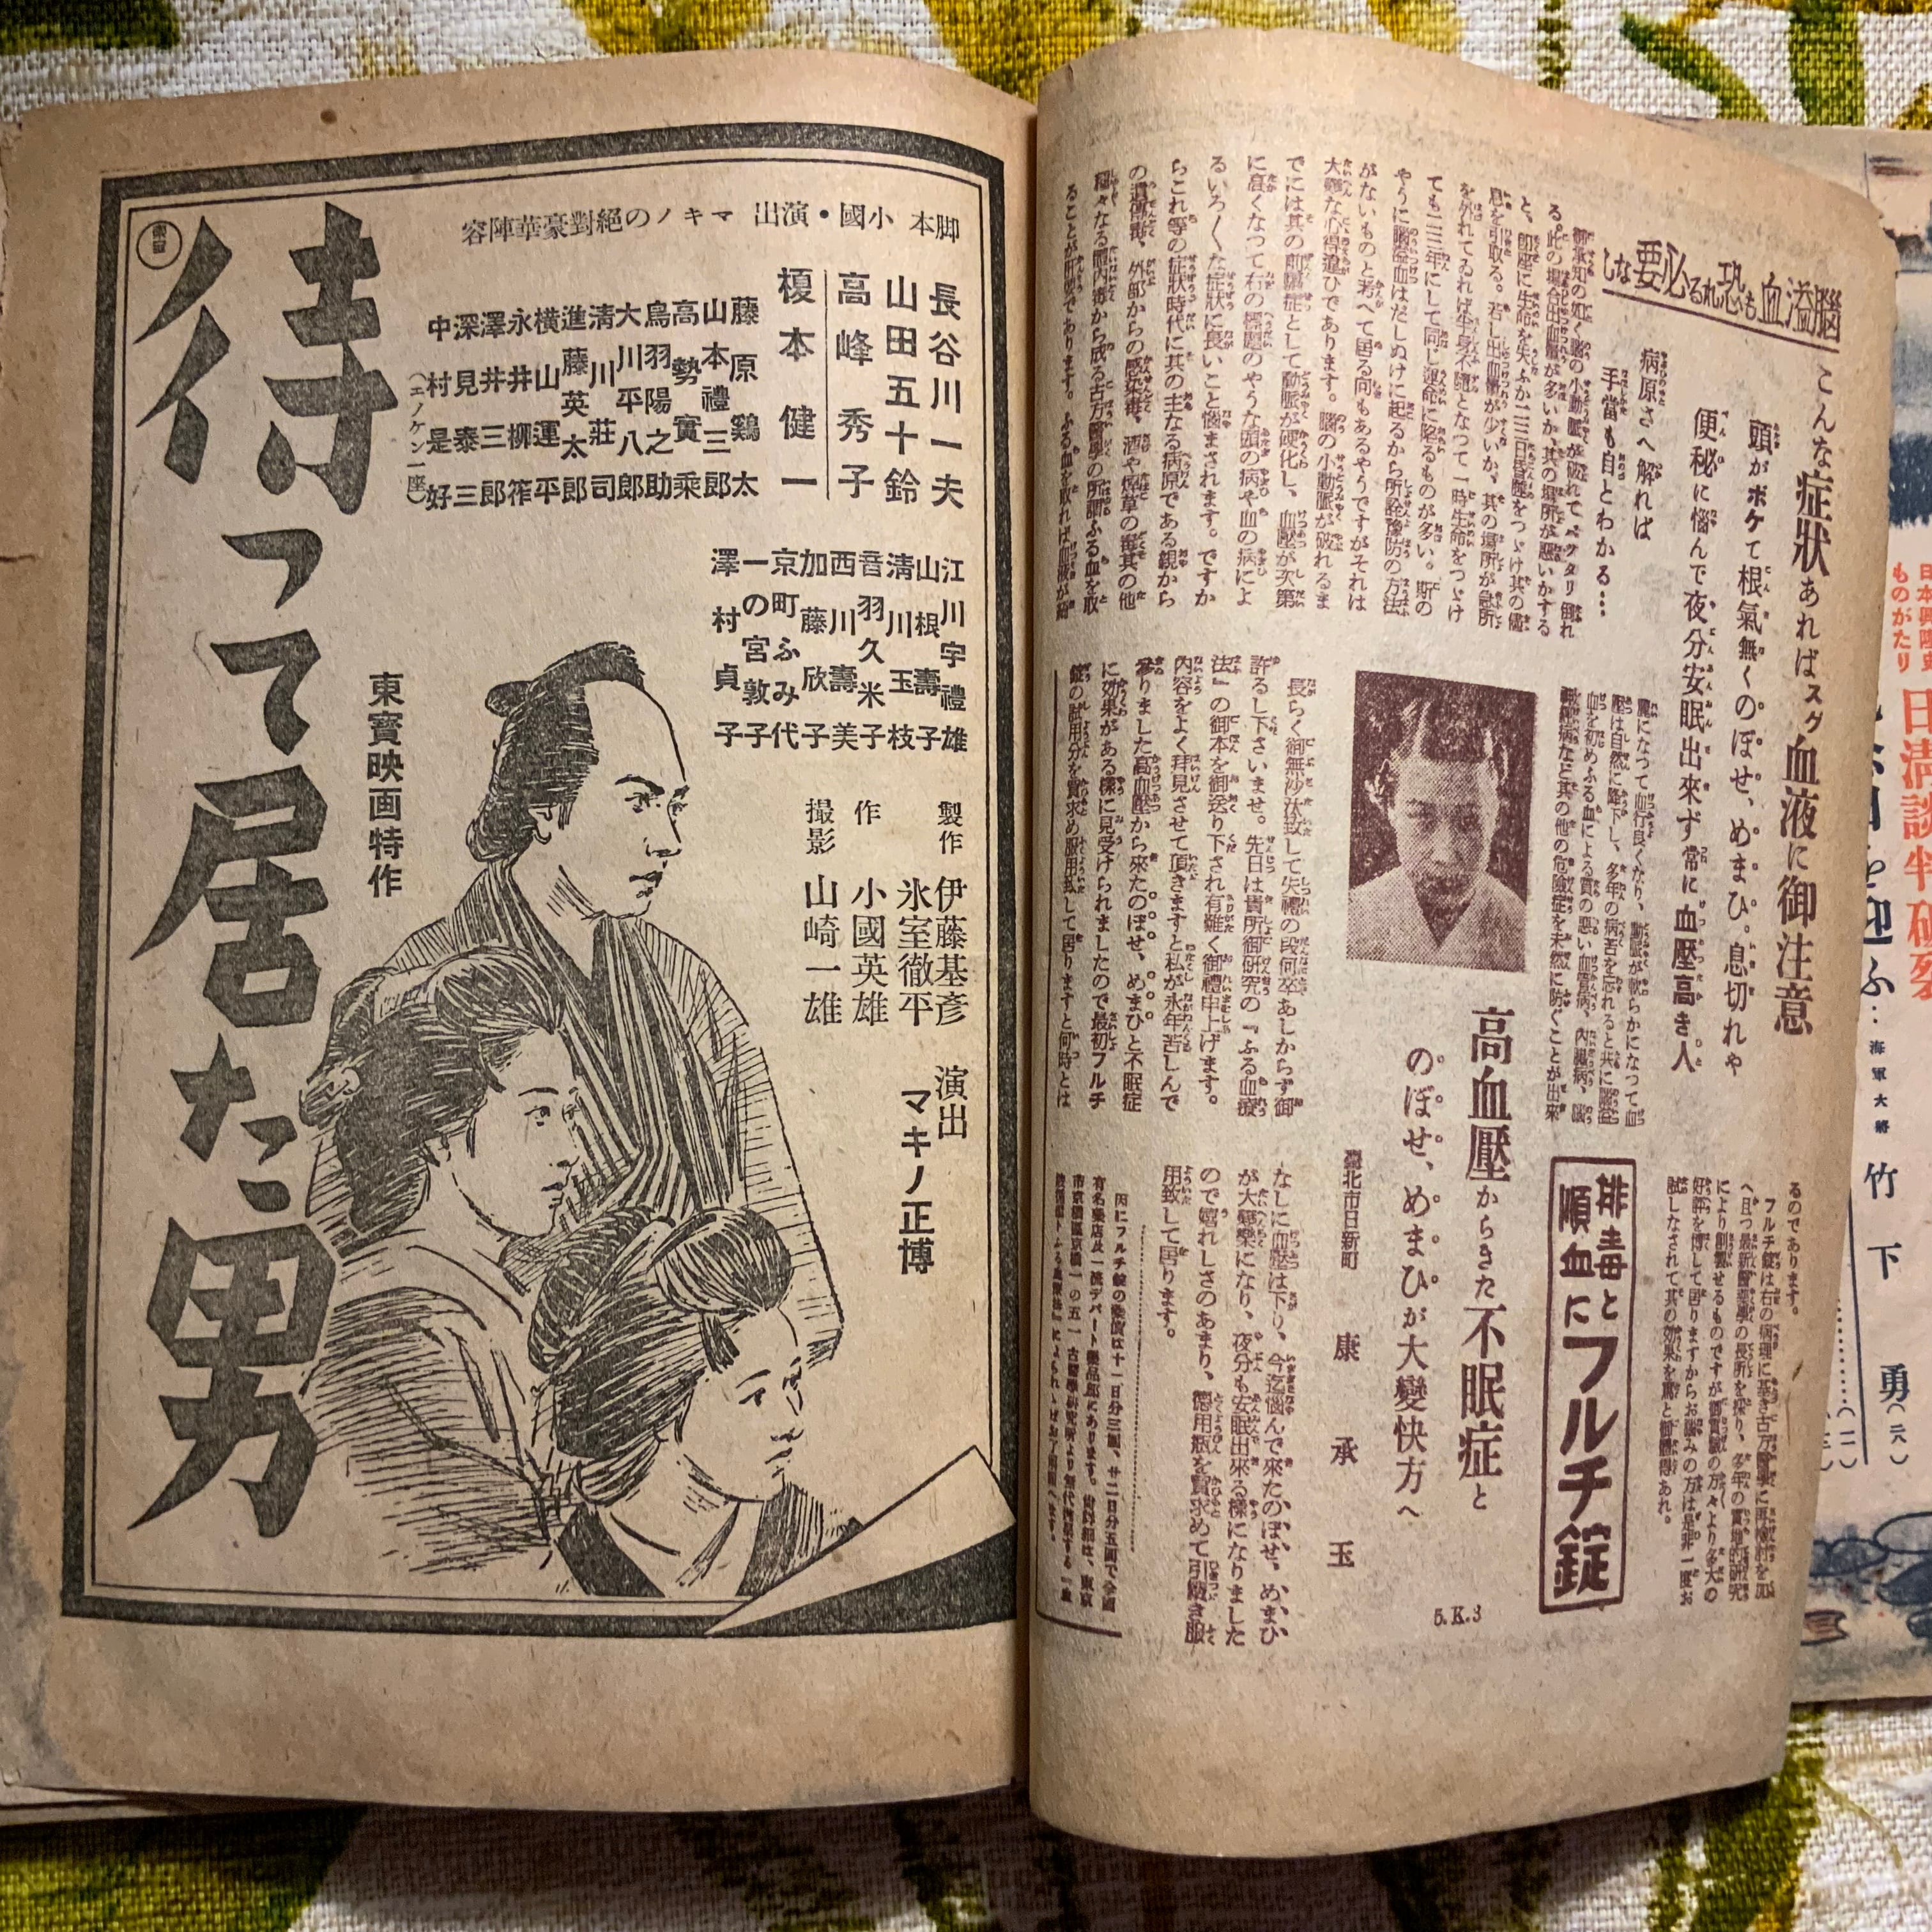 腦溢血も恐れる必要なし
こんな症狀あればスグ血液に御注意
頭がボケて根氣無くのぼせ、めまひ。息切れや
便秘に惱んで夜分安眠出來ず常に血壓高き人
病原さへ解れば
手當も自とわかる…
御承知の如く腦の小動脈が破れてバッタリ倒れ
る。此の場合出血量が多いか、其の場所が惡いかする
と、卽座に生命を失ふか二三日昏睡をつゞけ其の儘
息を引取る。若し出血量が少いか、其の場所が急所
を外れてゐれば半身不隨となつて一時生命をつゞけ
ても二三年にして同じ運命に陷るものが多い。斯の
やうに腦溢血はだしぬけに起るから所詮豫防の方法
がないものと考へて居る向もあるやうですがそれは
大變な心得違ひであります。腦の小動脈が破れるま
でには其の前驅症として動脈が硬化し、血壓が次第
に高くなつて右の標題のやうな頭の病や血の病によ
るいろ〱な症狀に長いこと惱まされます。ですか
らこれ等の症狀時代に其の主なる病原である親から
の遺傳毒、外部からの感染毒、酒や煙草の毒其の他
種々なる體內毒から成る古方醫學の所謂ふる血を取
ることが肝要であります。ふる血を取れば血液が綺
麗になつて血行良くなり、動脈が軟らかになつて血
壓は自然に降下し、多年の病苦を忘れると共に腦溢
血を初めふる血による質の惡い血管病、內臟病、腦
神經病など其の他の危險症を未然に防ぐことが出來
るのであります。
フルチ錠は右の病理に基き古方醫學に再檢討を加
へ且つ最新醫藥學の長所を採り、多年の實地的硏究
により創製せるものですが御實驗の方々より多大の
好評を博して居りますからお惱みの方は是非一度お
試しなされて其の効果を篤と御體得あれ。
排毒と
順血に
フルチ錠
高血壓からきた不眠症と
のぼせ、めまひが大變快方へ
臺北市日新町 康承玉
長らく御無沙汰致して失禮の段何卒あしからず御
許るし下さいませ。先日は貴所御硏究の『ふる血療
法』の御本を御送り下され有難く御禮申上げます。
內容をよく拜見させて頂きますと私が永年苦しんで
參りました高血壓から來たのぼせ、めまひと不眠症
に効果がある樣に見受けられましたので最初フルチ
錠の試用分を買求め服用致して居りますと何時とは
なしに血壓は下り、今迄惱んで來たのぼせ、めまひ
が大變樂になり、夜分も安眠出來る樣になりました
ので嬉れしさのあまり、德用瓶を買求めて引續き服
用致して居ります。
因にフルチ錠の藥價は十一日分三圓、廿二日分五圓で全國
有名藥店及一流デパート藥品部にあります。尙詳細は、東京
市京橋區京橋一の五一古醫學硏究所より無代進呈する『血
5.K.3
脚本 小國・演出 マキノの絕對豪華陣容
長谷川一夫
山田五十鈴
高峰秀子
榎本健一
藤原鷄太
山本禮三郎
高勢實乘
鳥羽陽之助
大川平八郎
淸川莊司
進藤英太郎
橫山運平
永井柳筰
澤井三郎
深見泰三
中村是好
(エノケン一座)
江川宇禮雄
山根壽子
淸川玉枝
音羽久米子
西川壽美
加藤欣子
京町ふみ代
一の宮敦子
澤村貞子
製作 伊藤基彥
氷室徹平
作 小國英雄
撮影 山崎一雄
演出 マキノ正博
東寶映画特作
待って居た男
東寶
日淸談判破裂
ものがたり
を迎ふ…海軍大將 竹下勇(二八)